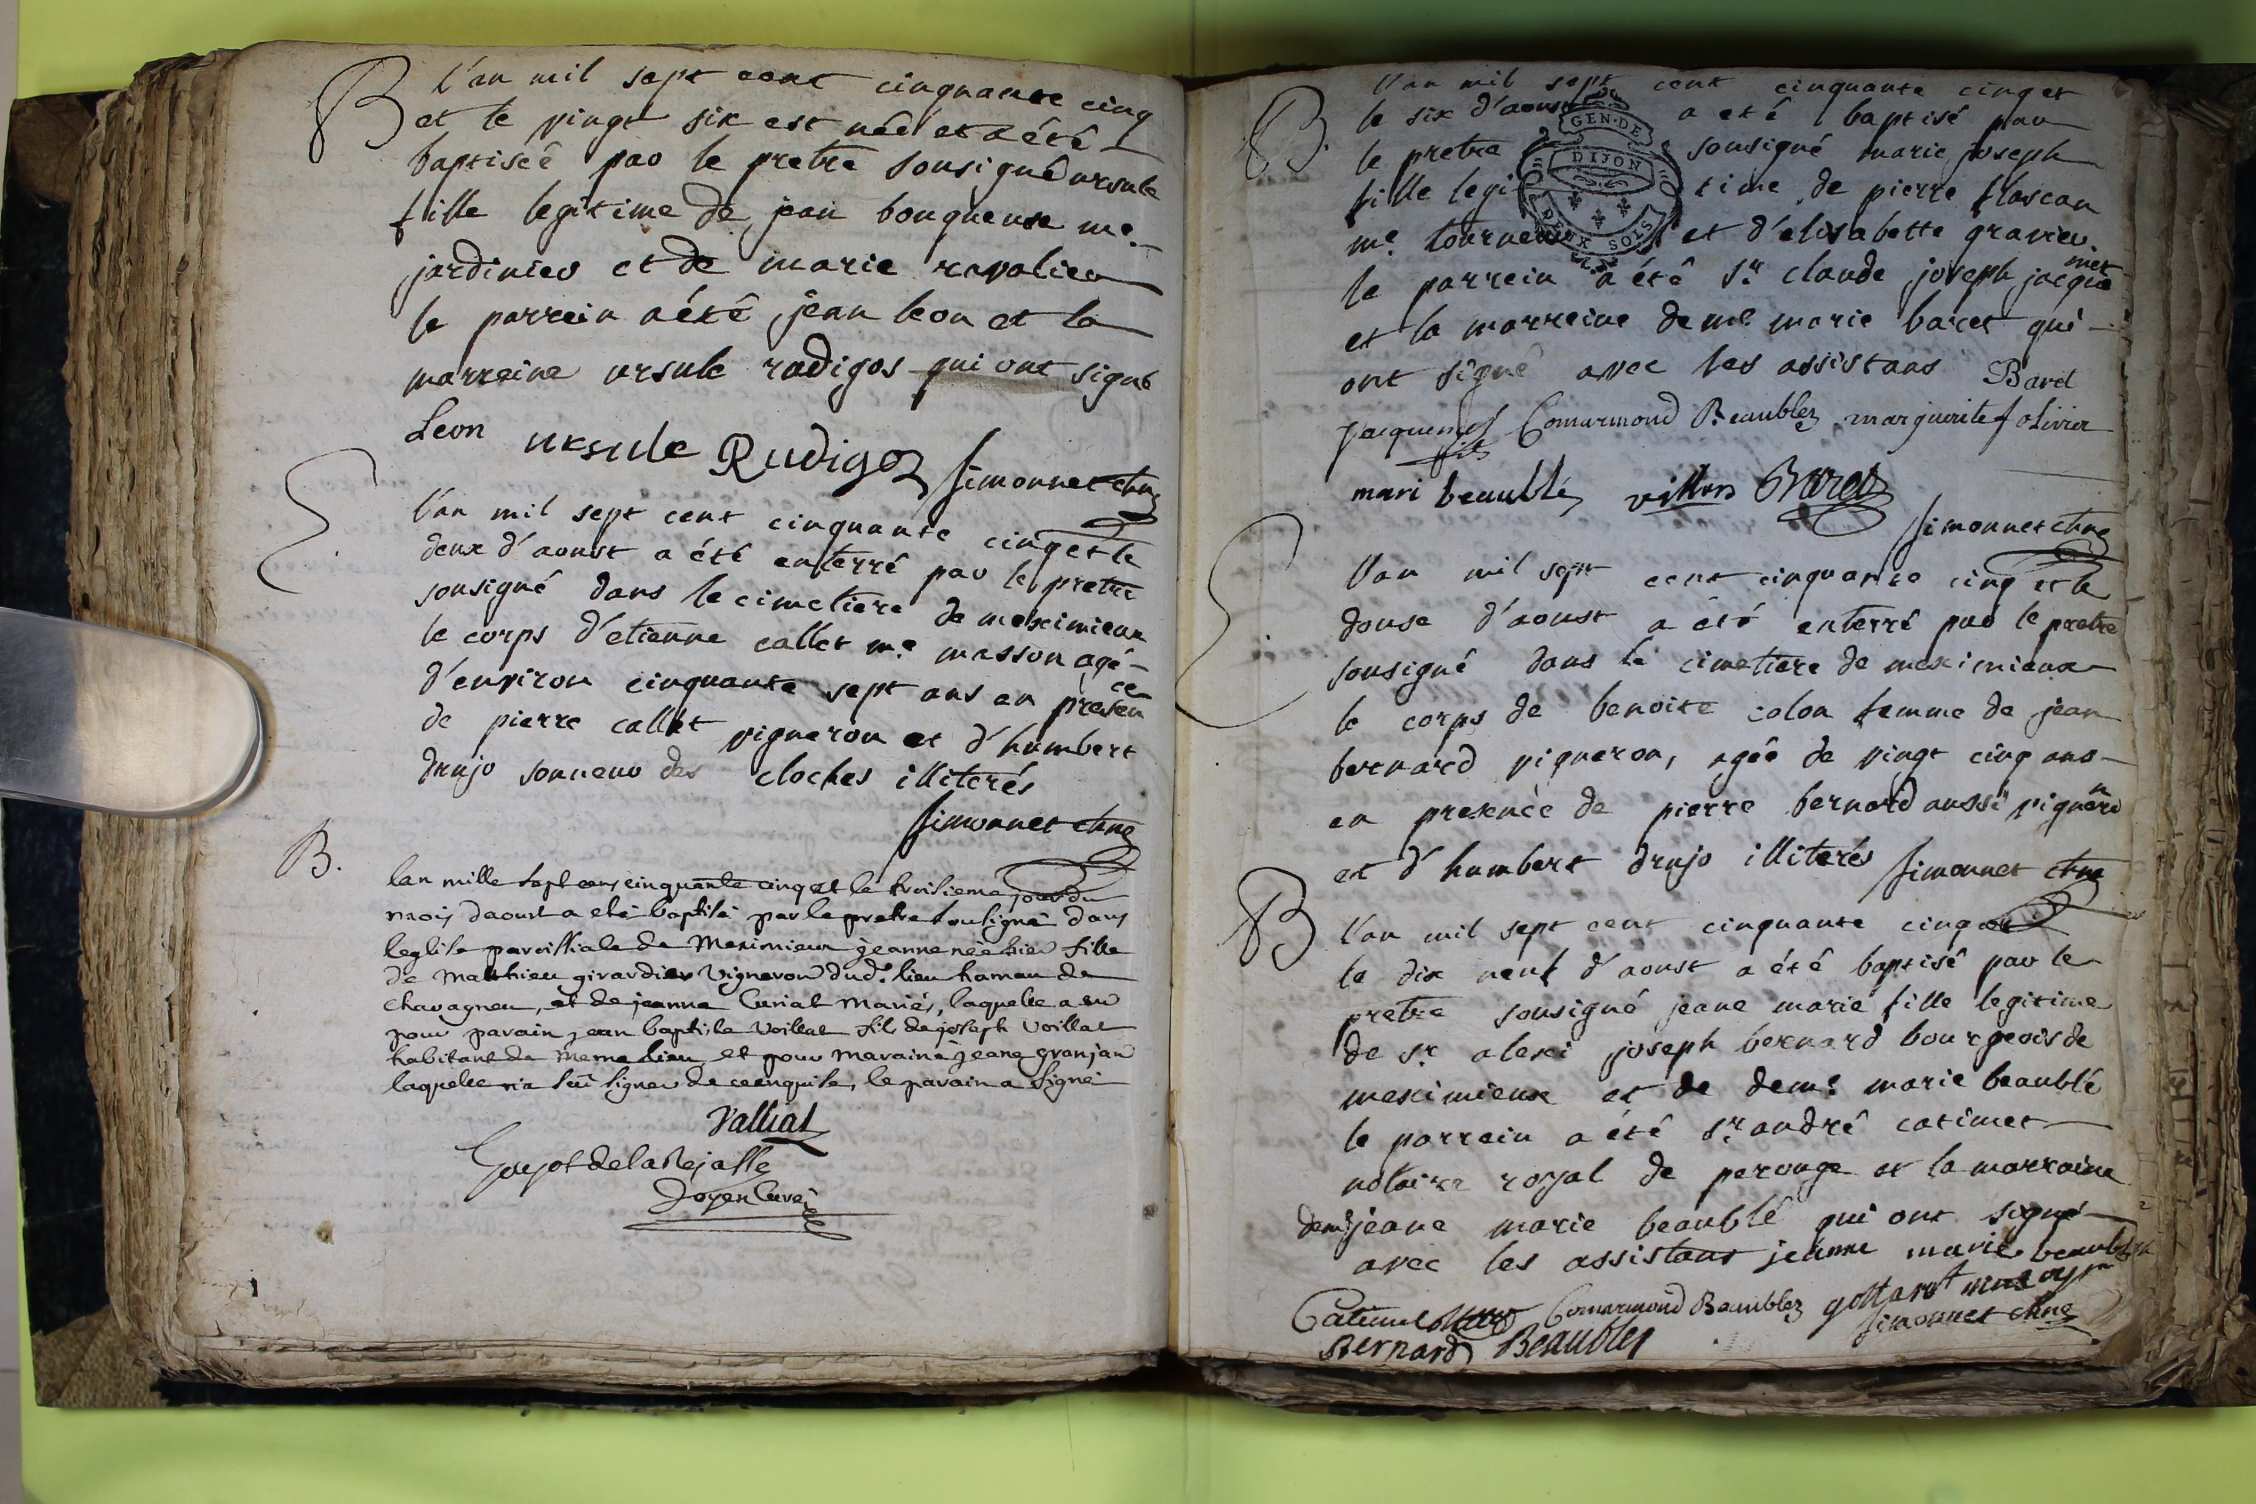 B
l'an mil sept cent cinquante cinq
et le vingt six est née et a été
baptiseé par le pretre sousigné ursule
fille legitime de jean bouqueuse me.
jardinier et de marie ravalieu
le parrein a été jean leon et la
marreine ursule radigos qui ont signé
Leon ursule Rudigoz Simonnet chne
l'an mil sept cent cinquante cinq et le
deux d'aoust a été enterré par le pretre
sousigné dans le cimetiere de meximieux
le corps d'etienne callet me. masson agé
d'environ cinquante sept ans en presence
de pierre callet vigneron et d'humbert
drujo sonneur des cloches illiterés
Simonnet chne
B.
lan mille sept cens cinquante cinq et le troisieme jour du
mois daoust a eté baptisé par le pretre sousigné dans
leglise paroissiale de Meximieux jeanne née hier fille
de Matthieu girardier Vigneron dud. lieu hameau de
chavagneu, et de jeanne Curiat Mariés, laquelle a eu
pour parain jean baptiste Voillat fils de joseph Voillat
habitant de meme lieu et pour maraine jeane granjan
laquelle n'a sçu signer de ce enquise, le parain a signé
Valliat
Guyot de la Rejasse
doyen Curé
B.
l'an mil sept cent cinquante cinq et
le six d'aoust a eté baptisé par
le pretre sousigné marie joseph
fille legitime de pierre flascan
me. tourneur et d'elisabette gravier.
le parrein a été Sr. claude joseph jacquemet
et la marreine deme. marie baret qui
ont signé avec les assistans Baret
jacquemet fils Comarmond Beaublez marguerite f olivier
mari beaublé villars Baret
Simonnet chne
l'an mil sept cent cinquante cinq et le
douse d'aoust a été enterré par le pretre
sousigné dans le cimetiere de meximieux
le corps de benoite colon femme de jean
bernard vigneron, ageé de vingt cinq ans
en presence de pierre bernard aussi vigneron
et d'humbert drujo illiterés Simonnet chne
B
l'an mil sept cent cinquante cinq et
le dix neuf d'aoust a été baptisé par le
pretre sousigné jeane marie fille legitime
de Sr. alexi joseph bernard bourgeois de
meximieux et de deme. marie beaublé
le parrein a été Sr. andré catimet
notaire royal de perouge et la marraine
deme. jeane marie beaublé qui ont signé
avec les assistans jeanne marie beaublé
Catimel Comarmond Beaublez gottaret
Simonnet chne
Bernard Beaublez
GEN·DE
DIJON
DEUX SOLS